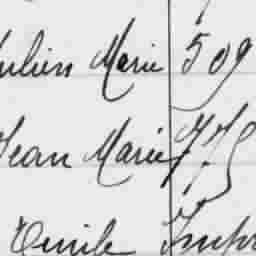 Julien Marie 509
Jean Marie 775
Emile